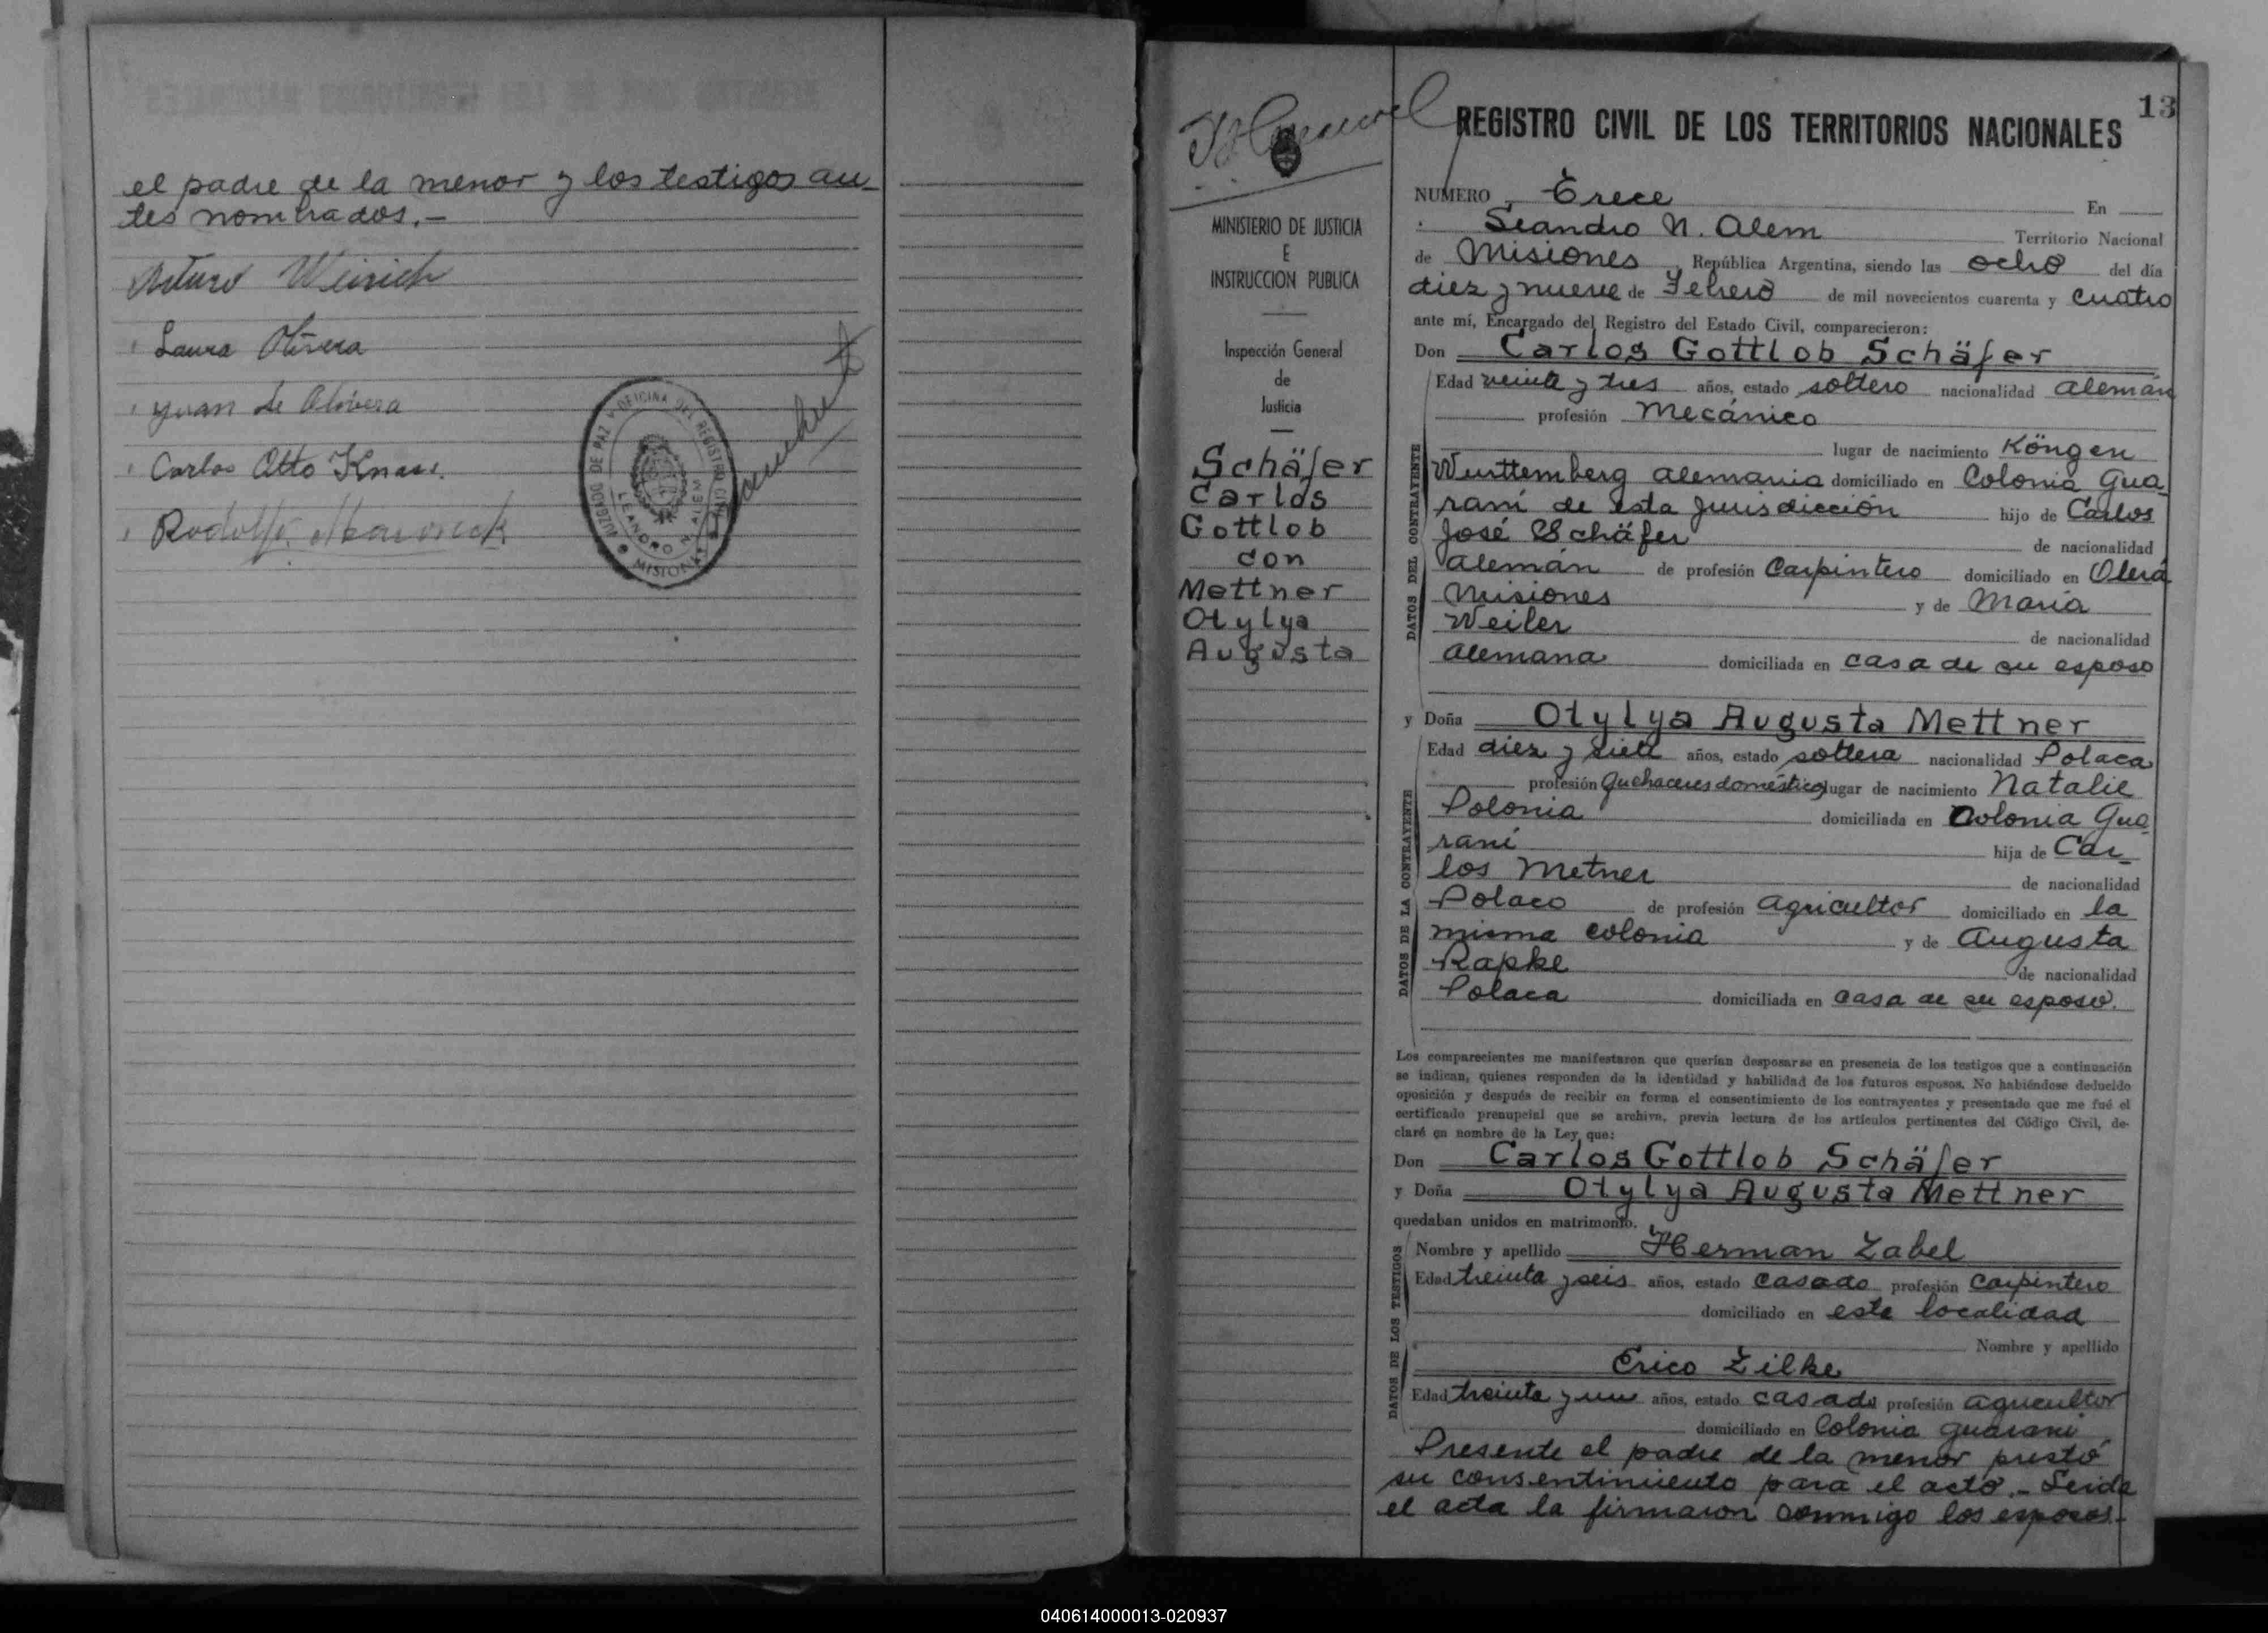 el padre de la menor y los testigos an-
tes nombrados.-
Arturo Weirich
Laura Olivera
Juan de Olivera
Carlos Otto
Rodolfo
JUZGADO DE PAZ Y OFICINA DEL REGISTRO CIVIL
LEANDRO N. ALEM
MISIONES
13
REGISTRO CIVIL DE LOS TERRITORIOS NACIONALES
MINISTERIO DE JUSTICIA
E
INSTRUCCION PUBLICA
Inspección General
de
Justicia
Schäfer
Carlos
Gottlob
con
Mettner
Otylya
Augusta
NUMERO Trece En
Leandro N. Alem Territorio Nacional
de Misiones, República Argentina, siendo las ocho del día
diez y nueve de Febrero de mil novecientos cuarenta y cuatro
ante mí, Encargado del Registro del Estado Civil, comparecieron:
Don Carlos Gottlob Schäfer
DATOS DEL CONTRAYENTE
Edad veinte y tres años, estado soltero nacionalidad Alemán
profesión Mecánico
lugar de nacimiento Köngen
Wurttemberg Alemania domiciliado en Colonia Gua-
raní de esta Jurisdicción hijo de Carlos
José Schäfer de nacionalidad
Alemán de profesión Carpintero domiciliado en Oberá
Misiones y de María
Weiler de nacionalidad
Alemana domiciliada en casa de su esposo
y Doña Otylya Augusta Mettner
DATOS DE LA CONTRAYENTE
Edad diez y siete años, estado soltera nacionalidad Polaca
profesión Quehaceres domésticos lugar de nacimiento Natalie
Polonia domiciliada en Colonia Gua-
raní hija de Car-
los Metner de nacionalidad
Polaco de profesión Agricultor domiciliado en la
misma colonia y de Augusta
Rapke de nacionalidad
Polaca domiciliada en casa de su esposo.
Los comparecientes me manifestaron que querían desposarse en presencia de los testigos que a continuación
se indican, quienes responden de la identidad y habilidad de los futuros esposos. No habiéndose deducido
oposición y después de recibir en forma el consentimiento de los contrayentes y presentado que me fué el
certificado prenupcial que se archiva, previa lectura de los artículos pertinentes del Código Civil, de-
claré en nombre de la Ley que:
Don Carlos Gottlob Schäfer
y Doña Otylya Augusta Mettner
quedaban unidos en matrimonio.
DATOS DE LOS TESTIGOS
Nombre y apellido Herman Zabel
Edad treinta y seis años, estado casado profesión Carpintero
domiciliado en esta localidad
Nombre y apellido
Erico Zilke
Edad treinta y un años, estado casado profesión Agricultor
domiciliado en Colonia Guaraní
Presente el padre de la menor prestó
su consentimiento para el acto.- Leida
el acta la firmaron conmigo los esposos.-
040614000013-020937